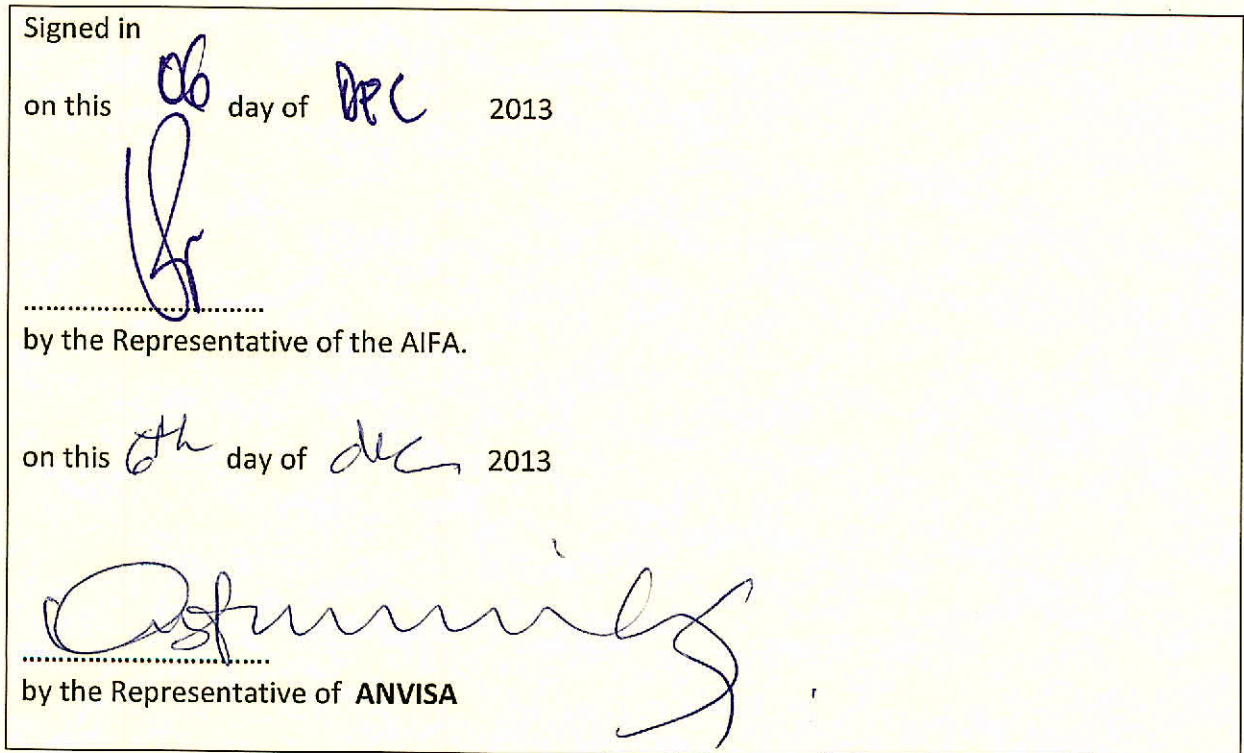 Signed in
on this 06 day of Dec 2013
..............................
by the Representative of the AIFA.
on this 6th day of dec 2013
..............................
by the Representative of ANVISA